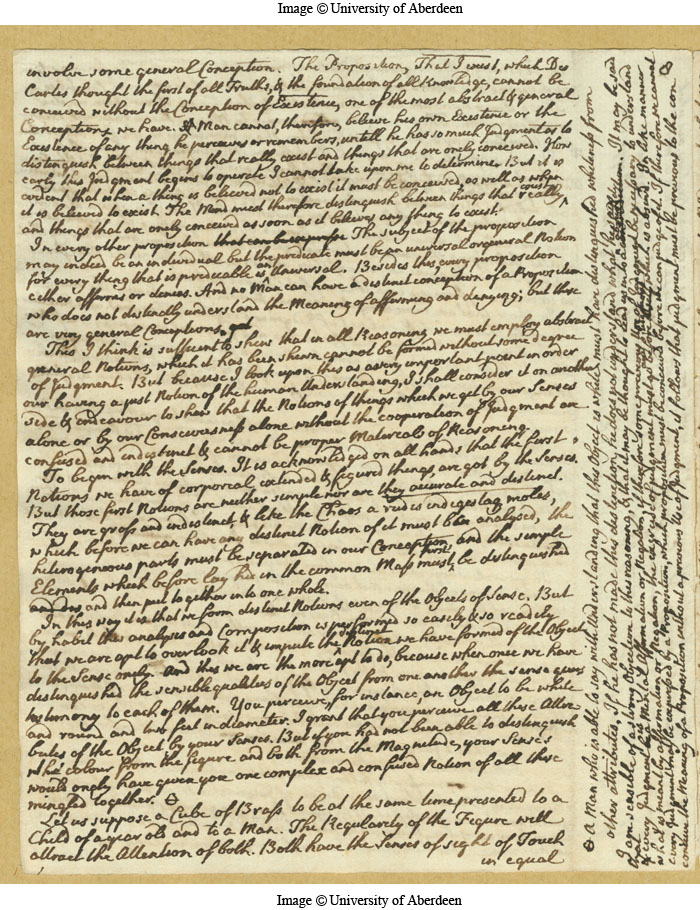 Image © University of Aberdeen
involve some general Conception. The Proposition, That I exist, which Des
Cartes thought the first of all Truths, & the foundation of all Knowledge, cannot be
conceived without the Conception of Existence, one of the most abstract & general
Conceptions we have. A Man cannot, therefore, believe his own Existence or the
Existence of any thing he perceives or remembers, untill he has so much Judgment as to
distinguish between things that really exist and things that are onely conceived. How
early this Judgment begins to operate I cannot take upon me to determine. But it is
evident that when a thing is believed not to exist it must be conceived, as well as when
it is believed to exist. The Mind must therefore distinguish between things that really exist
and things that are onely conceived as soon as it believes any thing to exist.
In every other proposition The subject of the proposition
may indeed be an individual but the predicate must be an universal or general Notion
for every thing that is predicable is an Universal. Besides this, every proposition
either affirms or denies. And no Man can have a distinct conception of a Proposition
who does not distinctly understand the Meaning of affirming and denying; but these
are very general Conceptions,
This I think is sufficient to shew that in all Reasoning we must employ abstract
general Notions, which it has been shewn cannot be formed without some degree
of Judgment. But because I look upon this as a very important point in order
our having a just Notion of the human Understanding, I shall consider it on another
side & endeavour to shew that the Notions of things which we get by our Senses
alone or by our Consciousness alone without the cooperation of Judgment are
confused and indistinct & cannot be proper Materials of Reasoning.
To begin with the Senses. It is acknowledged on all hands that the first
Notions we have of corporeal extended & figured things, are got by the Senses.
But those first Notions are neither simple nor are they accurate and distinct.
They are gross and indistinct, & like the Chaos a rudis indigestaq moles,
which before we can have any distinct Notion of it must be analysed, the
heterogeneous parts must be separated in our Conception, and the simple
Elements which before lay hid in the common Mass must, first, be distinguished
and then put together into one whole.
In this way it is that we form distinct Notions even of the Objects of Sense. But
by habit this analysis and Composition is performed so easily & so readily
that we are apt to overlook it & impute the distinct Notion we have formed of the Object
to the Sense onely. And this we are the more apt to do, because when once we have
distinguished the sensible qualities of the Object from one another the sense gives
testimony to each of them. You perceive, for instance, an Object to be white
and round and two feet in diameter. I grant that you perceive all these Attri-
butes of the Object by your Senses. But if you had not been able to distinguish
the colour from the figure and both from the Magnitude, your Senses
would onely have given you one complex and confused Notion of all these
mingled together.
Let us suppose a Cube of Brass to be at the same time presented to a
Child of a year old and to a Man. The Regularity of the Figure will
attract the Attention of both. Both have the Senses of sight & of Touch
in equal
A Man who is able to say with Understanding that this Object is white must have distinguished whiteness from
other attributes. If he has not made this distinction, he does not understand what he says.
I am sensible of a strong Objection to this reasoning, & that it may be thought to lead us into It may be said
that every Judgment
is what is meant by affirmation or Negation, the exercise of Judgment must go before
every Judgment may be expressed by a Proposition, which proposition must be conceived before we can judge of it. If therefore we cannot
conceive the Meaning of a Proposition without a previous Use of Judgment, it follows that judgment must be previous to the con
Image © University of Aberdeen